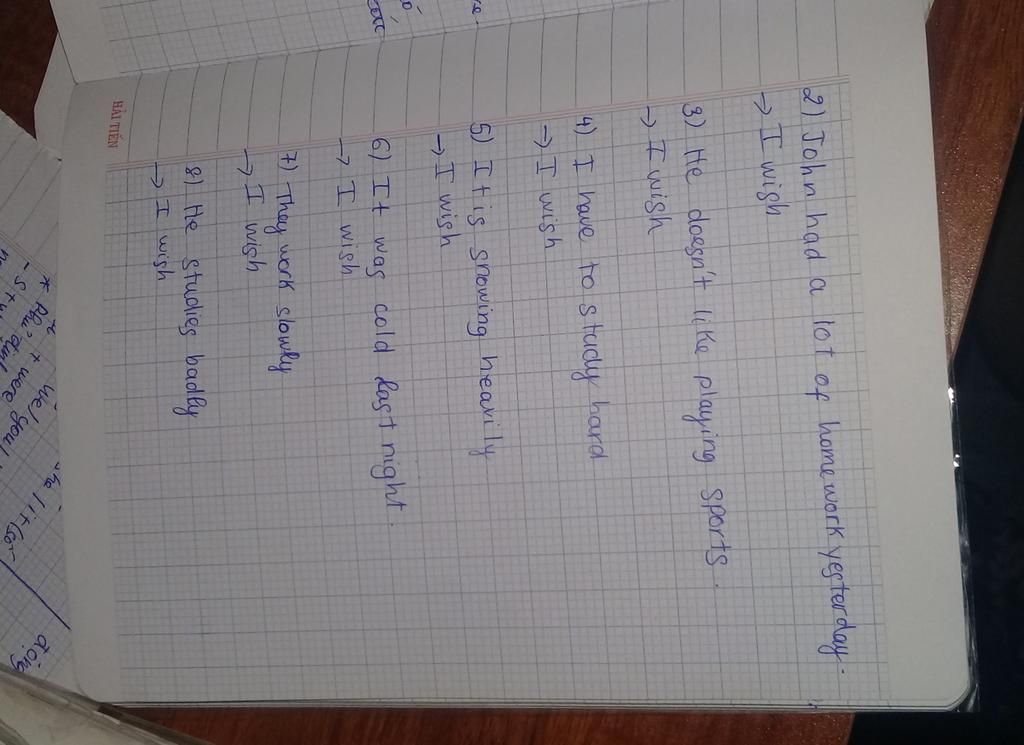 2) John had a lot of homework yesterday.
→ I wish
3) He doesn't like playing sports.
→ I wish
4) I have to study hard
→ I wish
5) It is snowing heavily
→ I wish
6) It was cold last night.
→ I wish
7) They work slowly
→ I wish
8) He studies badly
→ I wish
HẢI TIẾN